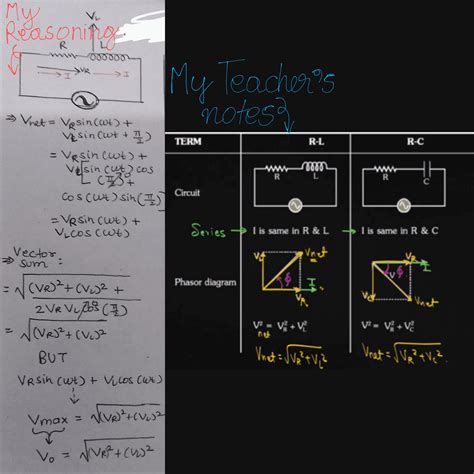 My
Reasoning
V_L
R L
I V_R I
⇒ Vnet = V_R sin(ωt) +
V_L sin(ωt + π/2)
= V_R sin(ωt) +
V_L[sin(ωt) cos
(π/2) +
cos(ωt) sin(π/2)
= V_R sin(ωt) +
V_L cos(ωt)
⇒ Vector
sum:
= √(V_R)² + (V_L)² +
2 V_R V_L cos(π/2)
= √(V_R)² + (V_L)²
BUT
V_R sin(ωt) + V_L cos(ωt)
Vmax = √(V_R)² + (V_L)²
V₀ = √(V_R)² + (V_L)²
My Teacher's
notes
TERM R-L R-C
Circuit
R L R C
Series → I is same in R & L → I is same in R & C
Phasor diagram
V_L Vnet ϕ I V_R
V_R I ϕ V V_C Vnet
V²net = V_R² + V_L² V² = V_R² + V_C²
Vnet = √V_R² + V_L² Vnet = √V_R² + V_C²